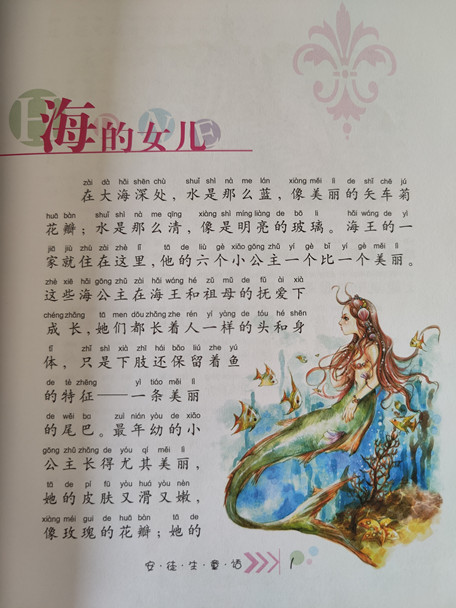 海的女儿
zài dà hǎi shēn chù shuǐ shì nà me lán xiàng měi lì de shǐ chē jú
在大海深处，水是那么蓝，像美丽的矢车菊
huā bàn shuǐ shì nà me qīng xiàng shì míng liàng de bō li hǎi wáng de yì
花瓣；水是那么清，像是明亮的玻璃。海王的一
jiā jiù zhù zài zhè lǐ tā de liù gè xiǎo gōng zhǔ yí gè bǐ yí gè měi lì
家就住在这里，他的六个小公主一个比一个美丽。
zhè xiē hǎi gōng zhǔ zài hǎi wáng hé zǔ mǔ de fǔ ài xià
这些海公主在海王和祖母的抚爱下
chéng zhǎng tā men dōu zhǎng zhe rén yí yàng de tóu hé shēn
成长，她们都长着人一样的头和身
tǐ zhǐ shì xià zhī hái bǎo liú zhe yú
体，只是下肢还保留着鱼
de tè zhēng yì tiáo měi lì
的特征——一条美丽
de wěi ba zuì nián yòu de xiǎo
的尾巴。最年幼的小
gōng zhǔ zhǎng de yóu qí měi lì
公主长得尤其美丽，
tā de pí fū yòu huá yòu nèn
她的皮肤又滑又嫩，
xiàng méi gui de huā bàn tā de
像玫瑰的花瓣；她的
安·徒·生·童·话
1